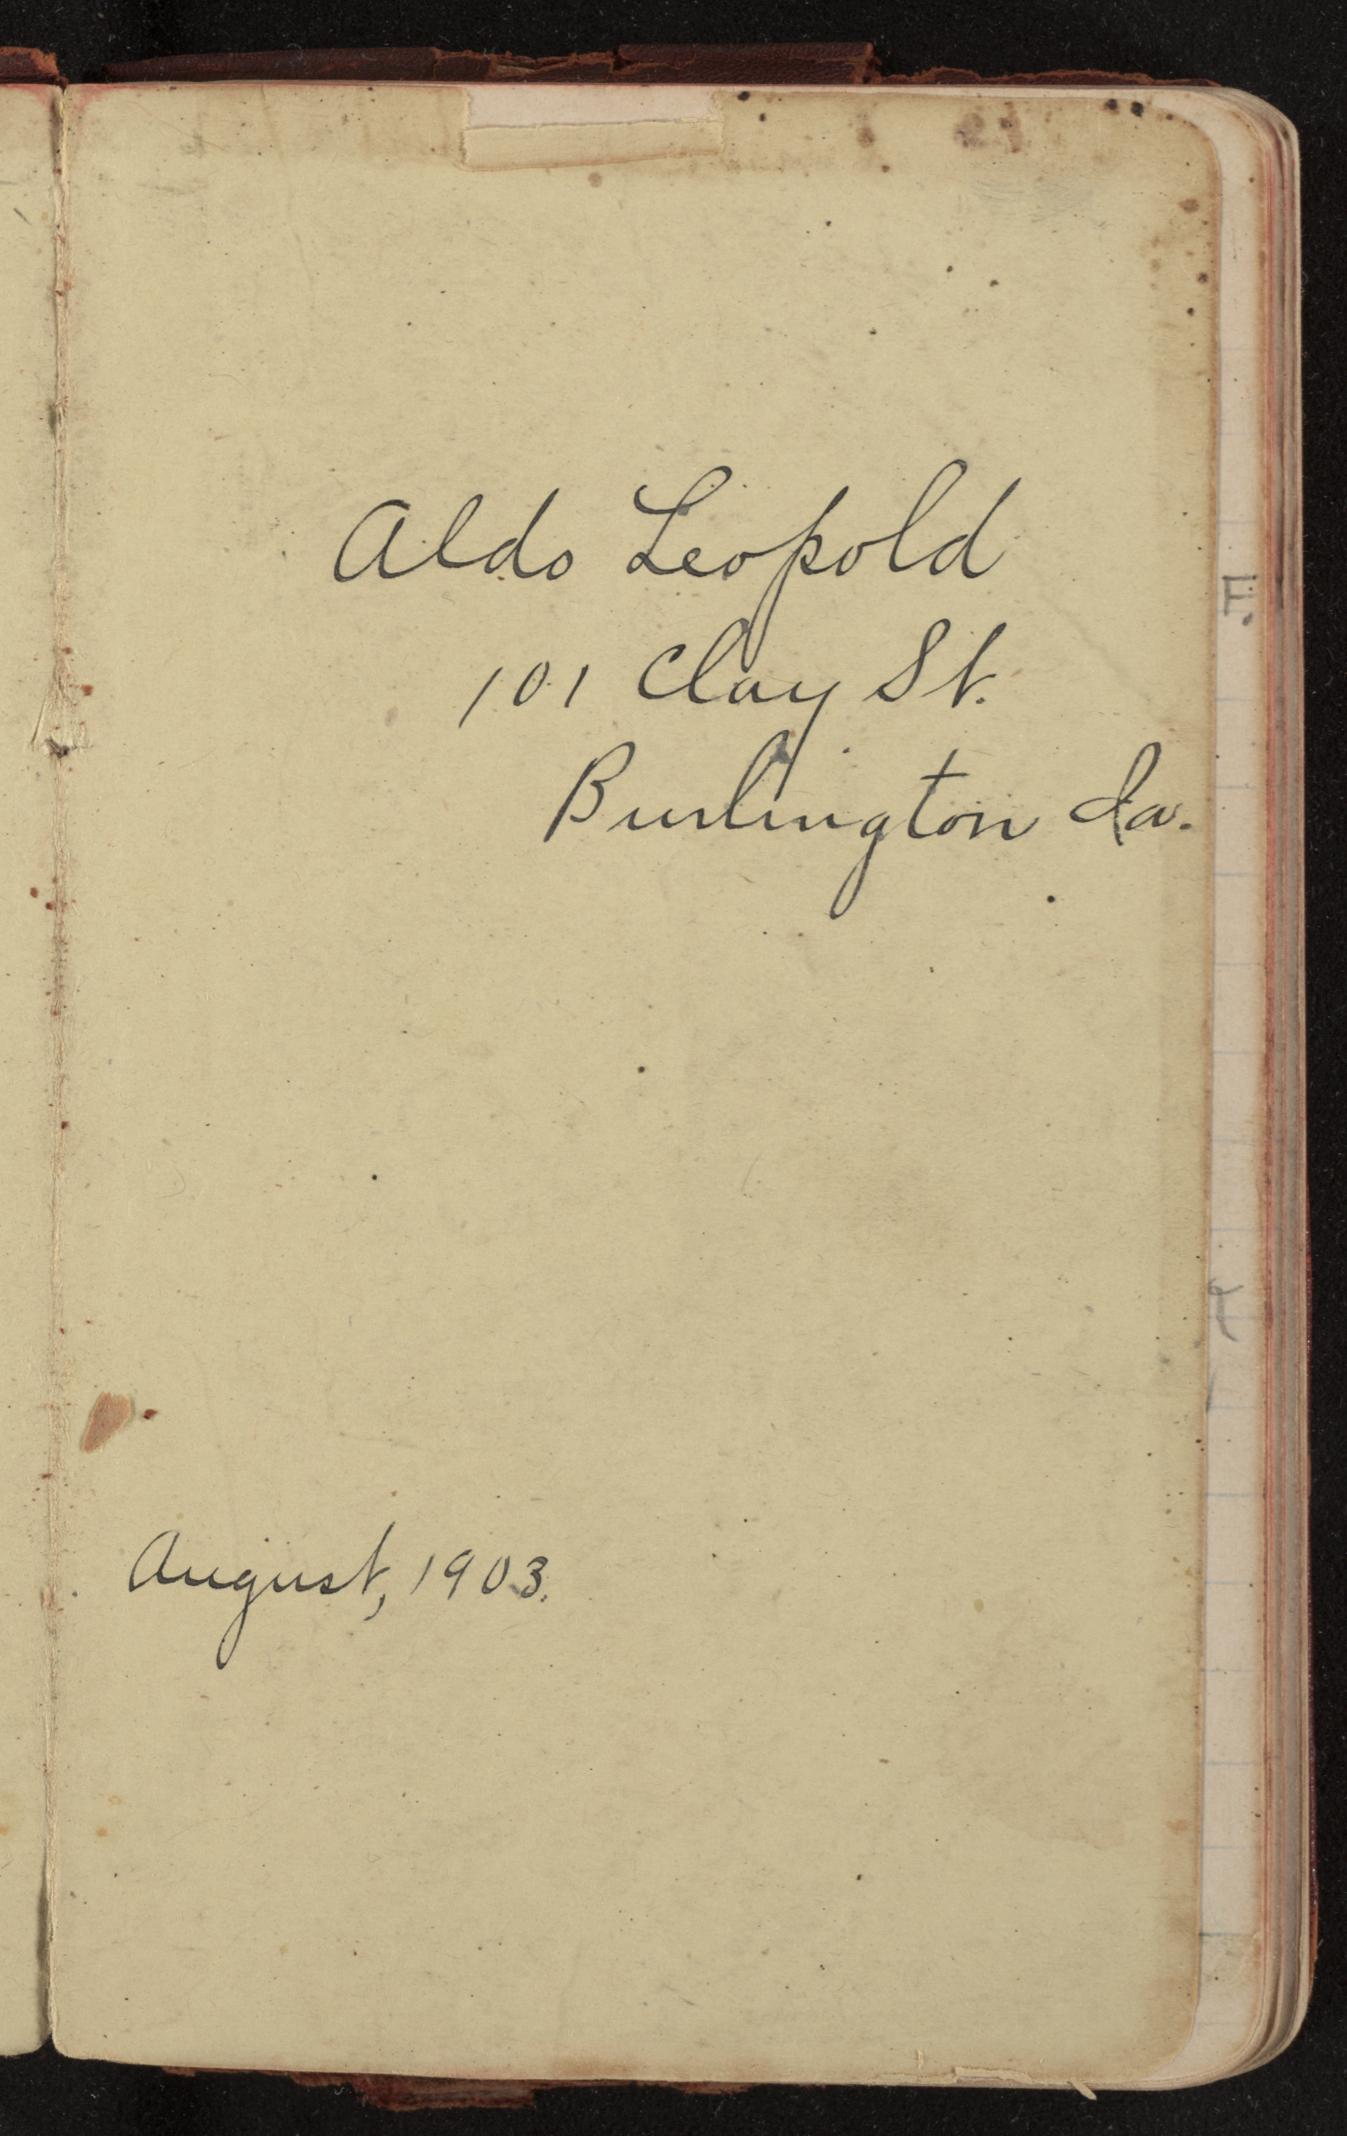 Aldo Leopold
101 Clay St.
Burlington Ia.
August, 1903.
F.